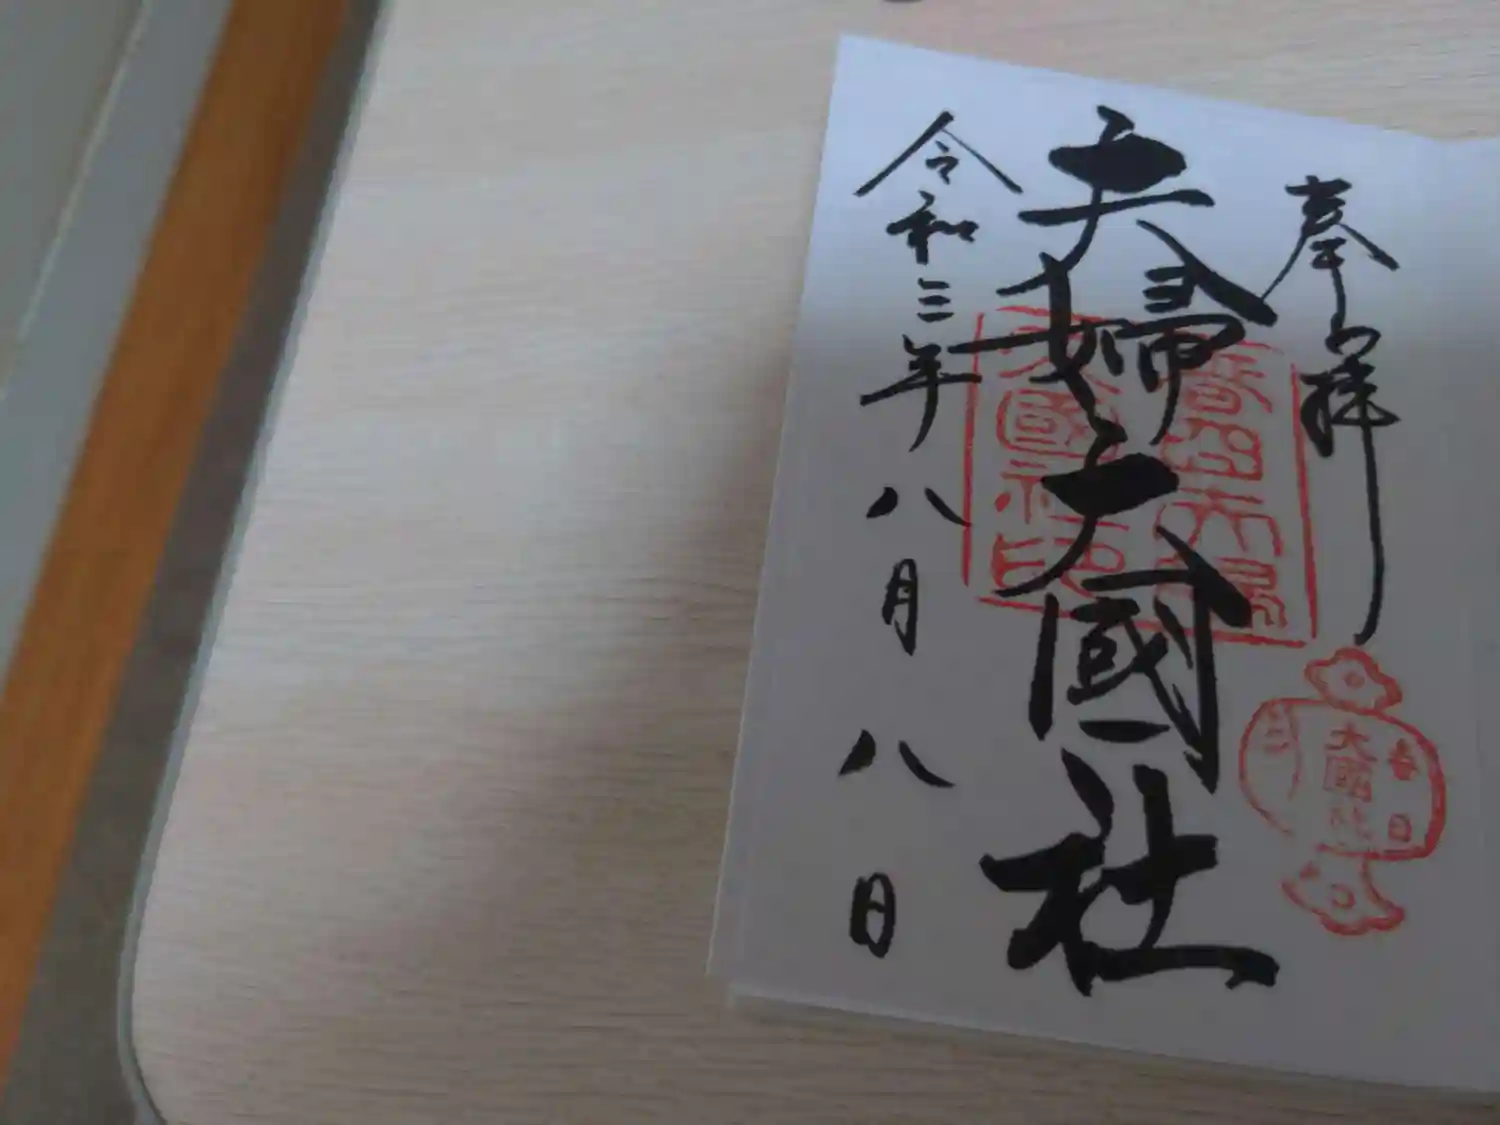 奉拝
夫婦大國社
令和三年八月八日
春日
大國社